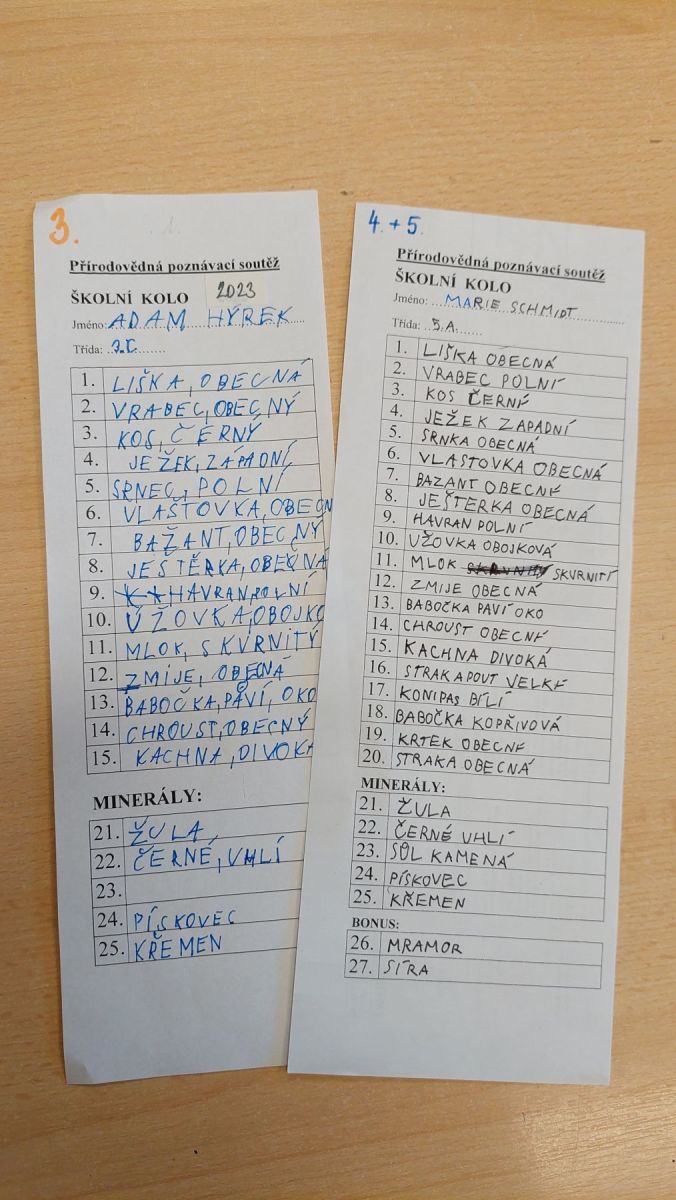 3.
Přírodovědná poznávací soutěž
ŠKOLNÍ KOLO 2023
Jméno: ADAM HÝREK
Třída: 3.C.
1. LIŠKA, OBECNÁ
2. VRABEC, OBECNÝ
3. KOS, ČERNÝ
4. JEŽEK, ZÁPADNÍ
5. SRNEC, POLNÍ
6. VLAŠTOVKA, OBECN
7. BAŽANT, OBECNÝ
8. JEŠTĚRKA, OBEČNÁ
9. HAVRAN POLNÍ
10. ÚŽOVKA, OBOJKO
11. MLOK, SKVRNITÝ
12. ZMIJE, OBECNÁ
13. BABOČKA, PÁVÍ, OKO
14. CHROUST, OBECNÝ
15. KACHNA, DIVOKÁ
MINERÁLY:
21. ŽULA,
22. ČERNÉ, UHLÍ
23.
24. PÍSKOVEC
25. KŘEMEN
4. + 5.
Přírodovědná poznávací soutěž
ŠKOLNÍ KOLO
Jméno: MARIE SCHMIDT
Třída: 5.A.
1. LIŠKA OBECNÁ
2. VRABEC POLNÍ
3. KOS ČERNÍ
4. JEŽEK ZAPADNÍ
5. SRNKA OBECNÁ
6. VLASTOVKA OBECNÁ
7. BAZANT OBECNÉ
8. JEŠTERKA OBECNÁ
9. HAVRAN POLNÍ
10. UŽOVKA OBOJKOVÁ
11. MLOK SKVRNITÍ
12. ZMIJE OBECNÁ
13. BABOČKA PAVÍ OKO
14. CHROUST OBECNÉ
15. KACHNA DIVOKÁ
16. STRAKAPOUT VELKÉ
17. KONIPAS BÍLÍ
18. BABOČKA KOPŘIVOVÁ
19. KRTEK OBECNÉ
20. STRAKA OBECNÁ
MINERÁLY:
21. ŽULA
22. ČERNÉ UHLÍ
23. SŮL KAMENÁ
24. PÍSKOVEC
25. KŘEMEN
BONUS:
26. MRAMOR
27. SÍRA